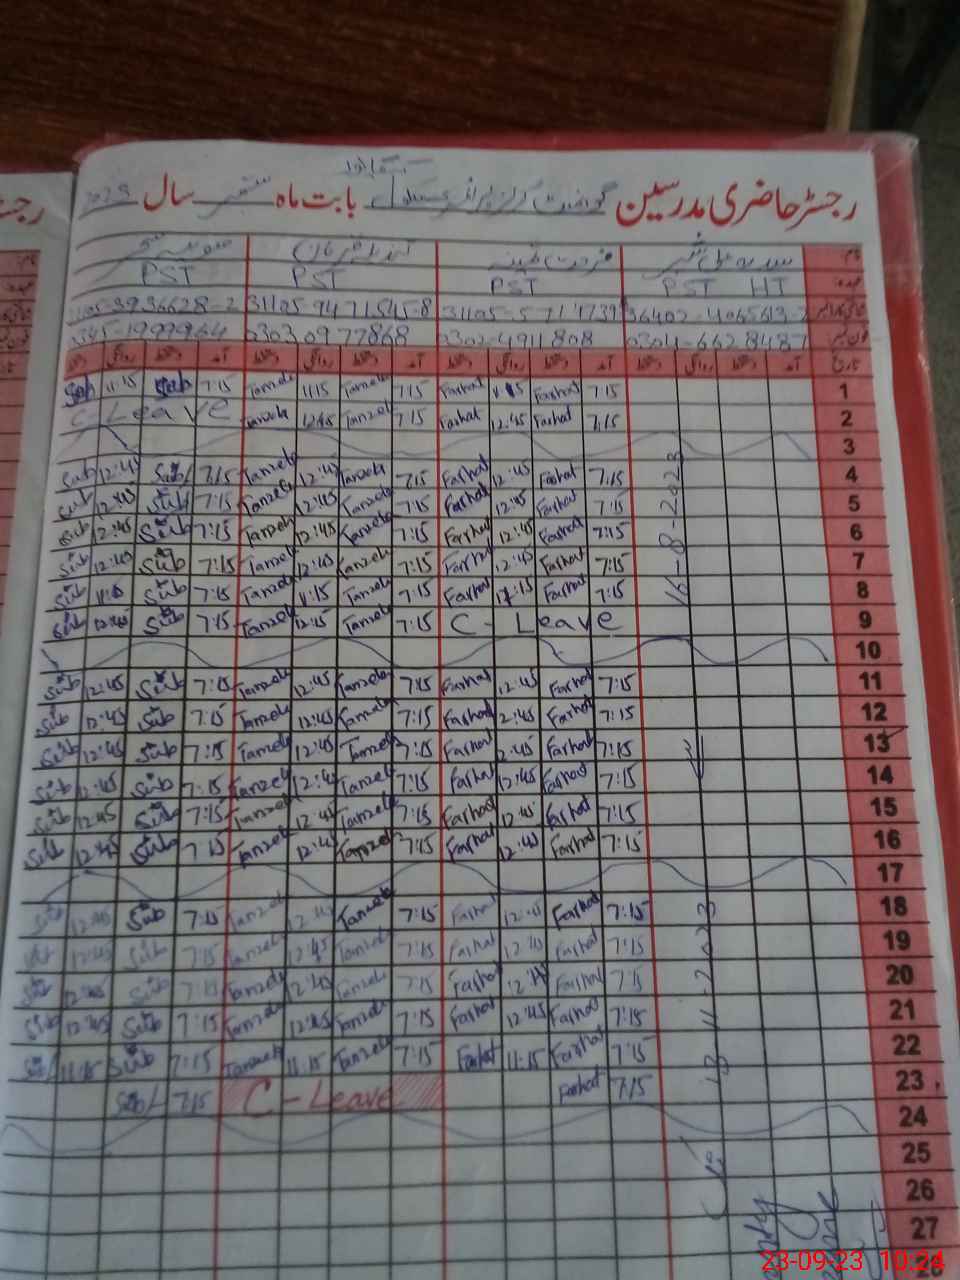 رجسٹر حاضری مدرسین گورنمنٹ گرلز پرائمری سکول بابت ماہ ستمبر سال 2023
نام
PST HT PST PST PST
36402-4065613-2 31105-9471545-8 31105-3936628-2
0304-6628487 0302-4911808 03030977868 0345-1999964
تاریخ آمد دستخط روانگی دستخط آمد دستخط روانگی دستخط آمد دستخط روانگی دستخط آمد دستخط روانگی دستخط
1 7:15 Farhat 11:15 Farhat 7:15 Tanzela 11:15 Tanzela 7:15 Sub 11:15 Sub
2 7:15 Farhat 12:45 Farhat 7:15 Tanzela 12:45 Tanzela C-Leave
3
4 7:15 Farhat 12:45 Farhat 7:15 Tanzela 12:45 Tanzela 7:15 Sub 12:45 Sub
5 7:15 Farhat 12:45 Farhat 7:15 Tanzela 12:45 Tanzela 7:15 Sub 12:45 Sub
6 7:15 Farhat 12:45 Farhat 7:15 Tanzela 12:45 Tanzela 7:15 Sub 12:45 Sub
7 7:15 Farhat 12:45 Farhat 7:15 Tanzela 12:45 Tanzela 7:15 Sub 12:45 Sub
8 7:15 Farhat 11:15 Farhat 7:15 Tanzela 11:15 Tanzela 7:15 Sub 11:15 Sub
9 C-Leave 7:15 Tanzela 12:45 Tanzela 7:15 Sub 12:45 Sub
10
11 7:15 Farhat 12:45 Farhat 7:15 Tanzela 12:45 Tanzela 7:15 Sub 12:45 Sub
12 7:15 Farhat 2:45 Farhat 7:15 Tanzela 12:45 Tanzela 7:15 Sub 12:45 Sub
13 7:15 Farhat 2:45 Farhat 7:15 Tanzela 12:45 Tanzela 7:15 Sub 12:45 Sub
14 7:15 Farhat 12:45 Farhat 7:15 Tanzela 12:45 Tanzela 7:15 Sub 12:45 Sub
15 7:15 Farhat 12:45 Farhat 7:15 Tanzela 12:45 Tanzela 7:15 Sub 12:45 Sub
16 7:15 Farhat 12:45 Farhat 7:15 Tanzela 12:45 Tanzela 7:15 Sub 12:45 Sub
17
18 7:15 Farhat 12:45 Farhat 7:15 Tanzela 12:45 Tanzela 7:15 Sub 12:45 Sub
19 7:15 Farhat 12:45 Farhat 7:15 Tanzela 12:45 Tanzela 7:15 Sub 12:45 Sub
20 7:15 Farhat 12:45 Farhat 7:15 Tanzela 12:45 Tanzela 7:15 Sub 12:45 Sub
21 7:15 Farhat 12:45 Farhat 7:15 Tanzela 12:45 Tanzela 7:15 Sub 12:45 Sub
22 7:15 Farhat 11:15 Farhat 7:15 Tanzela 11:15 Tanzela 7:15 Sub 11:15 Sub
23 7:15 Farhat C-Leave 7:15 Sub
24
25
26
27
16-8-2023
23-09-23 10:24